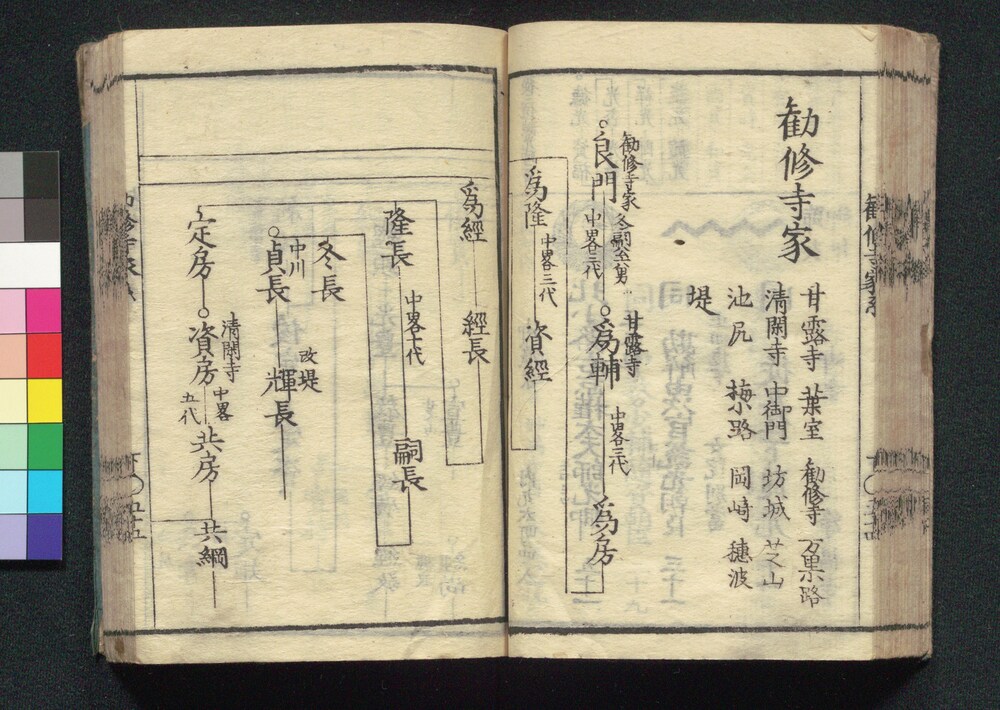 勧修寺家
甘露寺 葉室 勧修寺 万里小路
清閑寺 中御門 坊城 芝山
池尻 梅小路 岡崎 穂波
堤
勧修寺家 冬嗣公六男
良門 中畧三代
甘露寺
為輔 中畧三代 為房
為隆 中畧三代 資経
為経 経長
隆長 中畧十代 嗣長
冬長
中川
貞長 改堤 輝長
定房 清閑寺 資房 中畧五代 共房 共綱